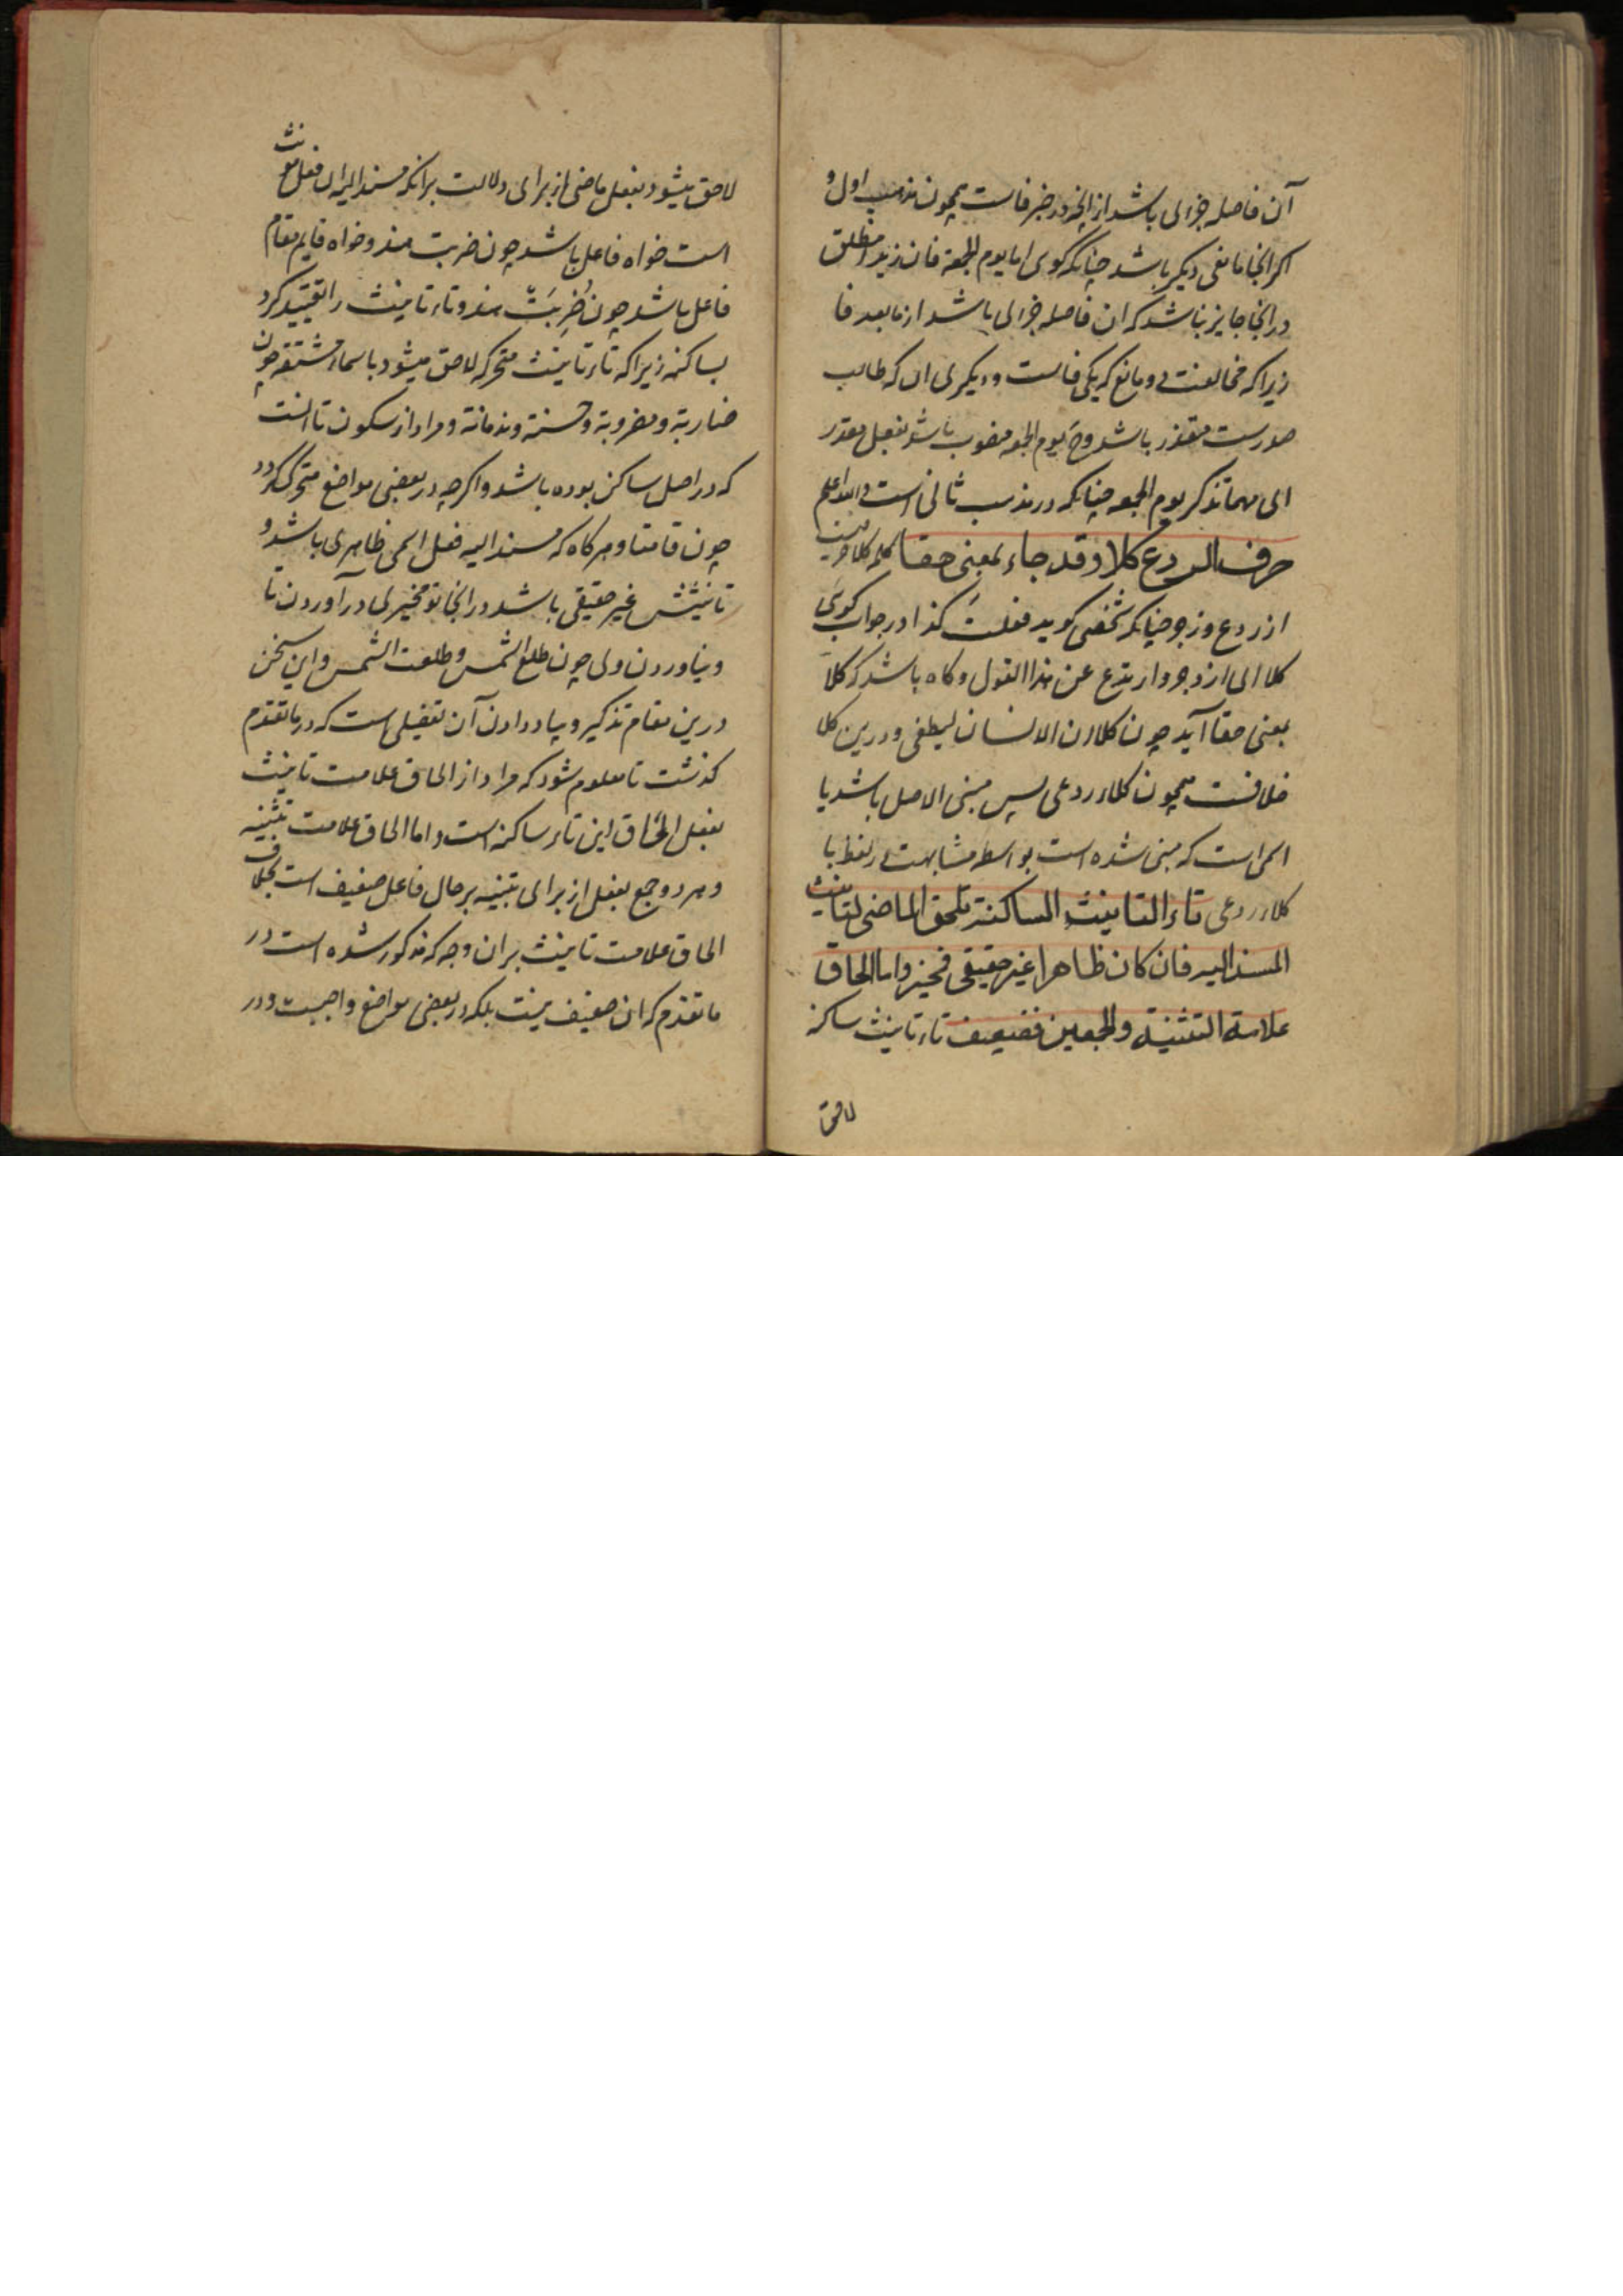 آن فاصله جزای باشد از انچه در خبر فاست همچون مذهب اول و
اکر انجا مانعی دیکر باشد چنانکه کوی اما یوم الجمعة فان زیدا منطلق
در انجا جایز نباشد که ان فاصله جزای باشد از مابعد فا
زیرا که مخالفت دو مانع که یکی فاست و دیکری ان که طالب
صورست متعذر باشد وح یوم الجمعه منصوب باشد بفعل مقدر
ای مهما تذکر یوم الجمعه چنانکه در مذهب ثانی است والله اعلم
حرف الردع کلا وقد جاء بمعنی حقا کلمه کلا حرفیست
از ردع و زجر چنانکه شخصی کوید فعلت کذا در جواب کوی
کلا ای ازدجر وارتدع عن هذا القول و کاه باشد که کلا
بمعنی حقا آید چون کلا ان الانسان لیطغی و درین کلا
خلافست همچون کلاء ردعی پس مبنی الاصل باشد یا
اسمی است که مبنی شده است بواسطه مشابهت در لفظ با
کلاء ردعی تاء التانیث الساکنة تلحق الماضی لتانیث
المسند الیه فان کان ظاهرا غیر حقیقی فمخیر واما الحاق
علامة التثنیة والجمعین فضعیف تاء تانیث ساکنه
لاحق
لاحق میشود بفعل ماضی از برای دلالت برانکه مسند الیه ان فعل مونث
است خواه فاعل باشد چون ضربت هند و خواه قایم مقام
فاعل باشد چون ضُرِبَتْ هند و تاء تانیث را تقیید کرد
بساکنه زیرا که تاء تانیث متحرکه لاحق میشود باسماء مشتقه چون
ضاربة و مضروبة و حسنة و ندمانة و مراد از سکون تا انست
که در اصل ساکن بوده باشد و اکرچه در بعضی مواضع متحرک کردد
چون قامتا و هرکاه که مسند الیه فعل اسمی ظاهری باشد و
تانیثش غیر حقیقی باشد در انجا تو مخیری در آوردن تا
و نیاوردن وی چون طلع الشمس و طلعت الشمس و این سخن
درین مقام تذکیر و یاد دادن آن تفصیلی است که در ما تقدم
کذشت تا معلوم شود که مراد از الحاق علامت تانیث
بفعل الحاق این تاء ساکنه است و اما الحاق علامت تثنیه
و هر دو جمع بفعل از برای تنبیه بر حال فاعل ضعیف است بخلاف
الحاق علامت تانیث بران وجه که مذکور شده است در
ما تقدم که ان ضعیف نیست بلکه در بعضی مواضع واجبست و در